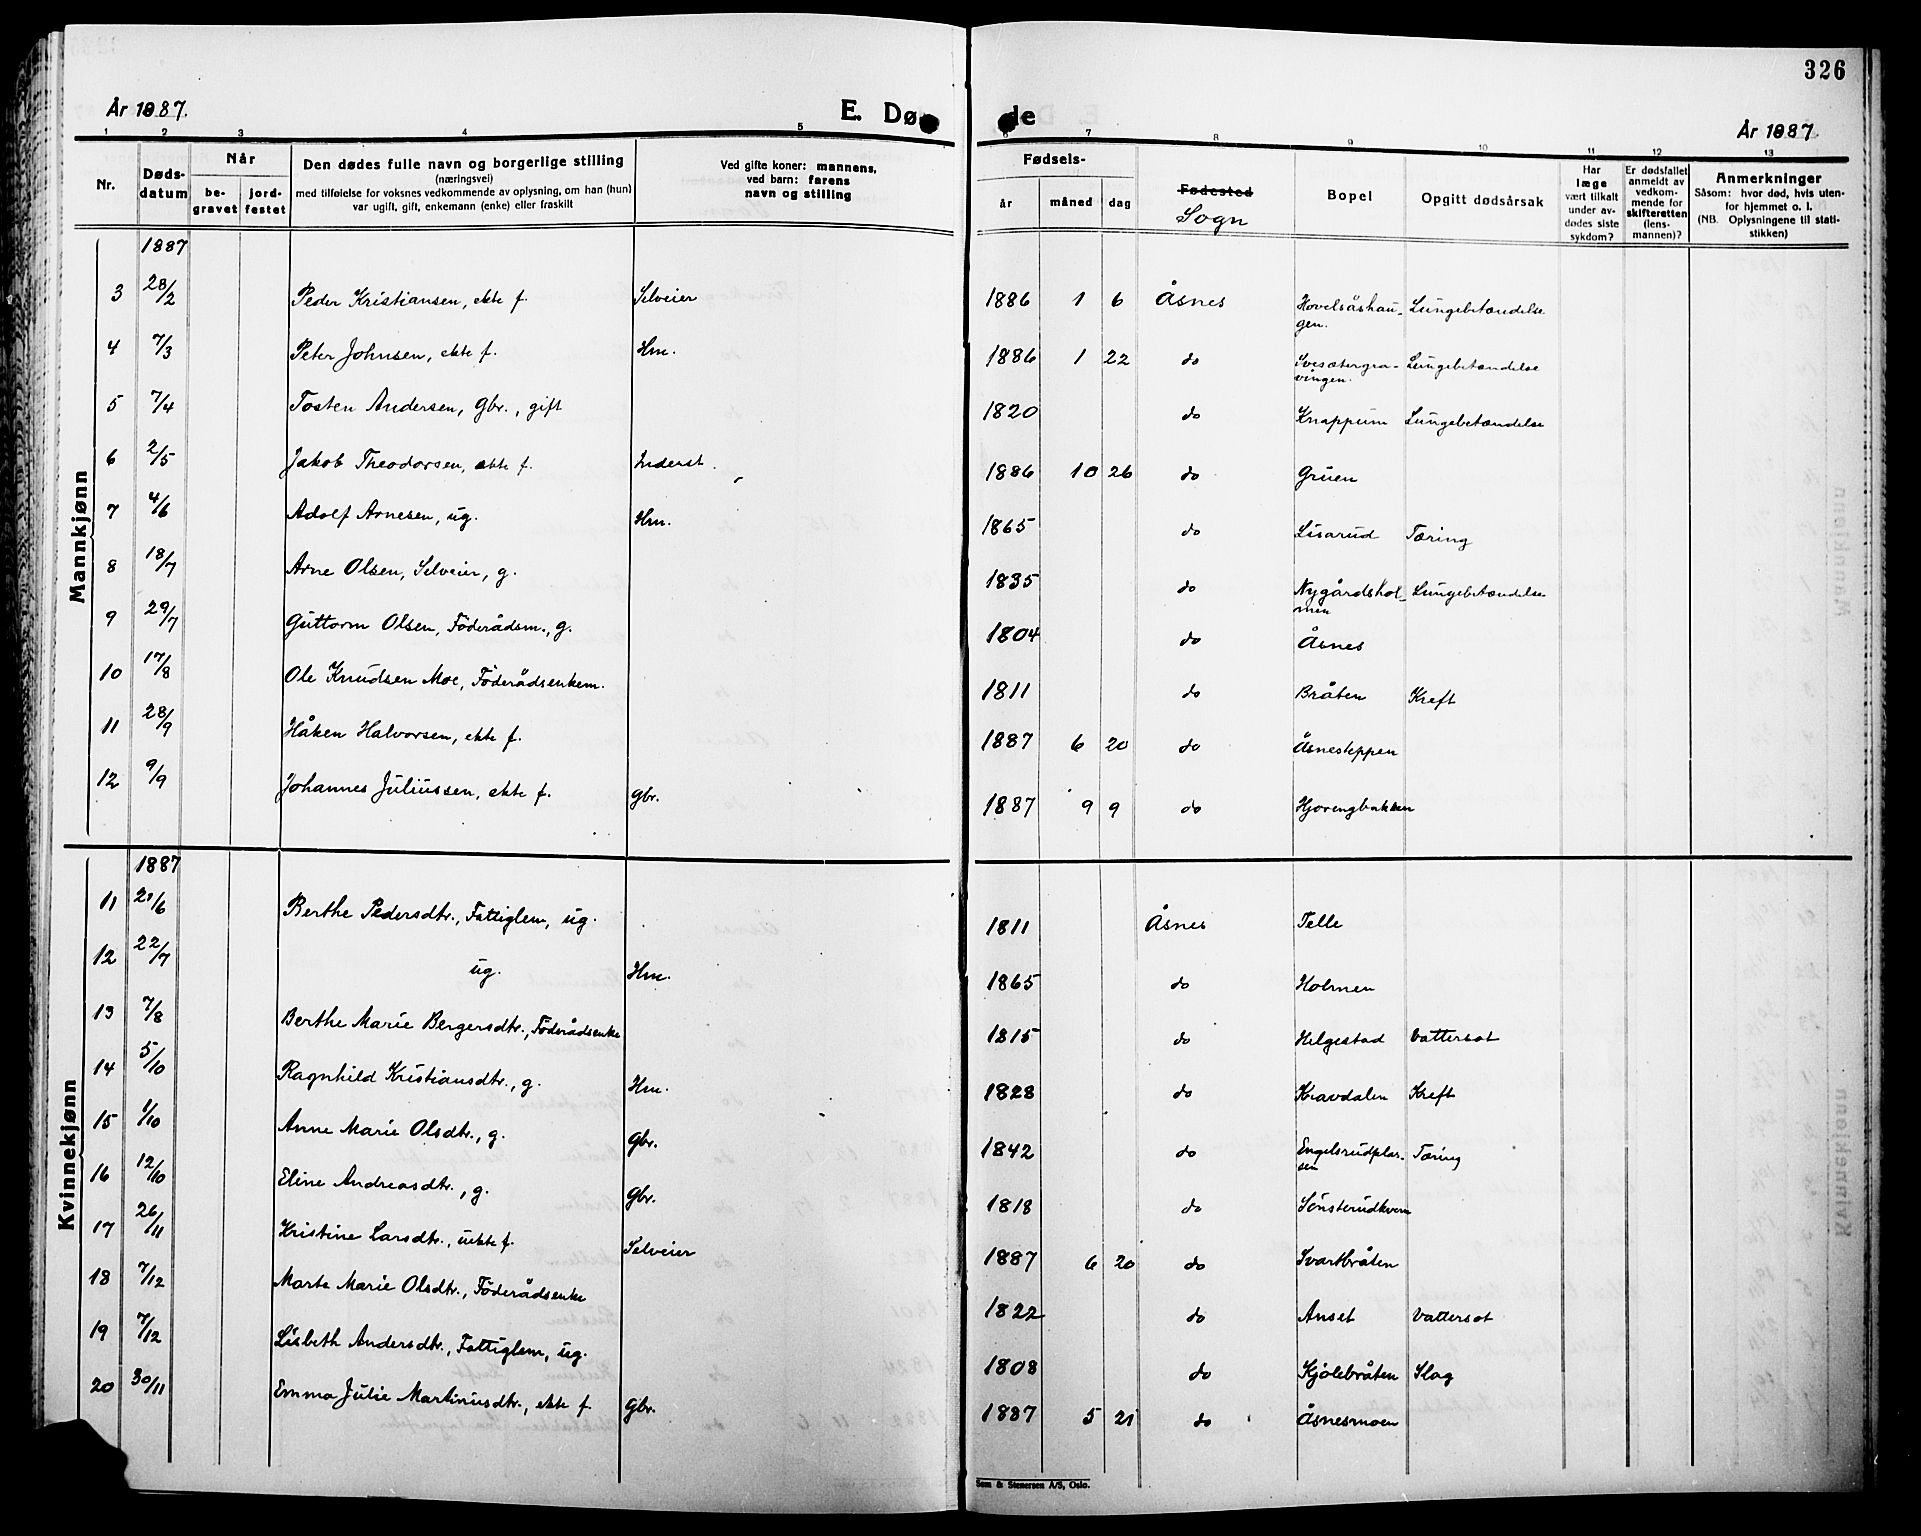 326
År 1887.
E. Dø de
År 1887
1 2 3 4 5 6 7 8 9 10 11 12 13
Nr.
Døds-
datum
Når
be-
gravet
jord-
festet
Den dødes fulle navn og borgerlige stilling
(næringsvei)
med tilføielse for voksnes vedkommende av oplysning, om han (hun)
var ugift, gift, enkemann (enke) eller fraskilt
Ved gifte koner: mannens,
ved barn: farens
navn og stilling
Fødsels-
år måned dag
Fødested
Sogn
Bopel
Opgitt dødsårsak
Har
læge
vært tilkalt
under av-
dødes siste
sykdom?
Er dødsfallet
anmeldt av
vedkom-
mende for
skifteretten
(lens-
mannen)?
Anmerkninger
Såsom: hvor død, hvis uten-
for hjemmet o. l.
(NB. Oplysningene til stati-
stikken)
Mannkjønn
1887
3 28/2 Peder Kristiansen, ekte f. Selveier 1886 1 6 Åsnes Hovelsåshau- Lungebetændelse
gen.
4 7/3 Peter Johnsen, ekte f. Hm. 1886 1 22 do Svesætergra- Lungebetændelse
vingen.
5 7/4 Tosten Andersen, Gbr., gift 1820 do Knappum Lungebetændelse
6 2/5 Jakob Theodorsen, ekte f. Inderst. 1886 10 26 do Gruen
7 4/6 Adolf Arnesen, ug. Hm. 1865 do Lisarud Tæring
8 18/7 Arne Olsen, Selveier, g. 1835 do Nygårdshol- Lungebetændelse
men
9 29/7 Guttorm Olsen, Föderådsm., g. 1804 do Åsnes
10 17/8 Ole Knudsen Moe, Föderådsenkem. 1811 do Bråten Kreft
11 28/9 Håken Halvorsen, ekte f. 1887 6 20 do Åsnesteppen
12 9/9 Johannes Juliussen, ekte f. gbr. 1887 9 9 do Hjorengbakken
Kvinnekjønn
1887
11 21/6 Berthe Pedersdtr., Fattiglem, ug. 1811 Åsnes Telle
12 22/7 ug. Hm. 1865 do Holmen
13 7/8 Berthe Marie Bergersdtr., Föderådsenke 1815 do Helgestad Vattersot
14 5/10 Ragnhild Kristiansdtr., g. Hm. 1828 do Kravdalen Kreft
15 1/10 Anne Marie Olsdtr., g. Gbr. 1842 do Engelsrudplas- Tæring
sen
16 12/10 Eline Andreasdtr., g. Gbr. 1818 do Sønsterudkvern
17 26/11 Kristine Larsdtr., uekte f. Selveier 1887 6 20 do Svartbråten
18 7/12 Marte Marie Olsdtr., Föderådsenke 1822 do Anset Vattersot
19 7/12 Lisbeth Andersdtr., Fattiglem, ug. 1808 do Kjølebråten Slag
20 30/11 Emma Julie Martinusdtr., ekte f. Gbr. 1887 5 21 do Åsnesmoen
Sem & Stenersen A/S, Oslo.